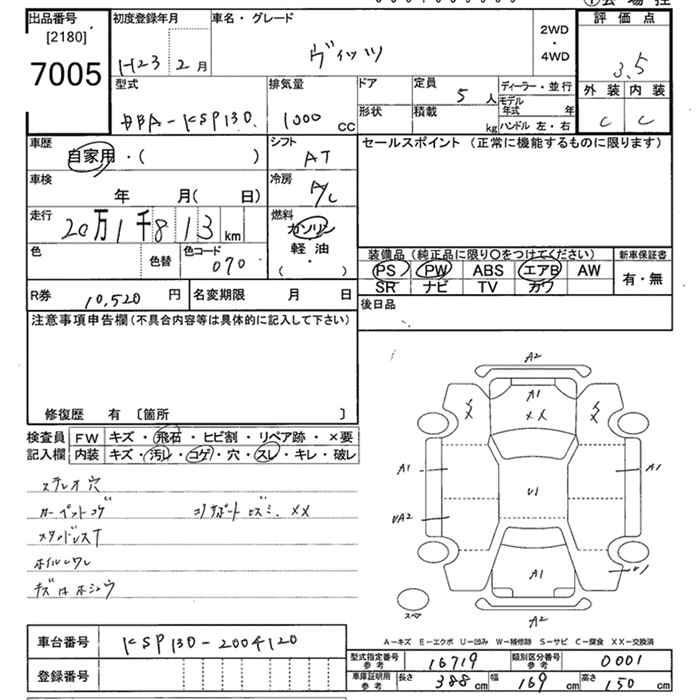 出品番号
[2180]
7005
初度登録年月
H23 2月
車名・グレード
ヴィッツ
2WD
・
4WD
評価点
3.5
外装 内装
C C
型式
DBA-KSP130
排気量
1000 CC
ドア
形状
定員
5人
積載
kg
ディーラー・並行
モデル年式 年
ハンドル 左・右
車歴
自家用・( )
シフト
AT
車検
年 月( 日)
冷房
A/C
走行
20万1千813km
燃料
ガソリン
軽油
・
( )
色
色替
色コード
070
R券 10,520円
名変期限 月 日
セールスポイント (正常に機能するものに限ります)
装備品(純正品に限り〇をつけてください)
PS PW ABS エアB AW
SR ナビ TV カワ
新車保証書
有・無
後日品
注意事項申告欄(不具合内容等は具体的に記入して下さい)
修復歴 有 〔箇所 〕
検査員記入欄
FW キズ・飛石・ヒビ割・リペア跡・×要
内装 キズ・汚レ・コゲ・穴・スレ・キレ・破レ
ステレオ穴
カーペットコゲ
コアサポートヒズミ、XX
スタッドレスT
ホイルサワレ
A2
A1
XX
A1
A1
UA2
U1
U1
A1
A2
スペア
A-キズ E-エクボ U-凹み W-補修跡 S-サビ C-腐食 XX-交換済
車台番号 KSP130-2004120
登録番号
型式指定番号参考 16719
類別区分番号参考 0001
車庫証明用参考 長さ 388cm 幅 169cm 高さ 150cm